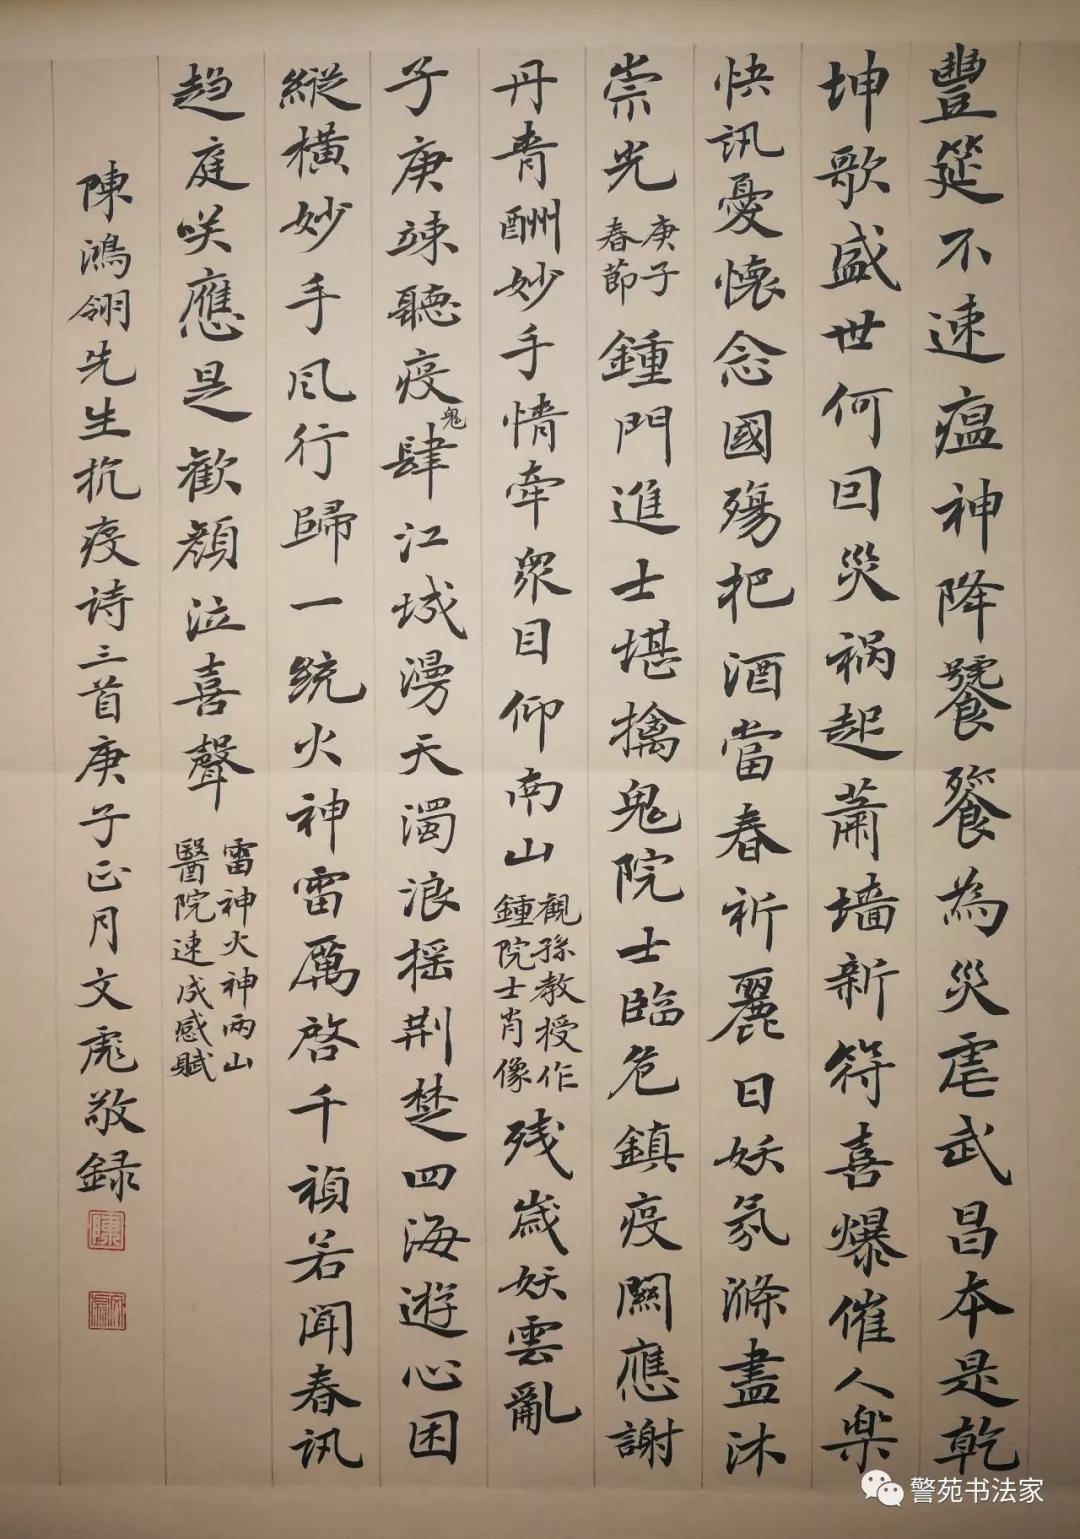 豐筵不速瘟神降饕餮為災虐武昌本是乾
坤歌盛世何回災祸起蕭墙新符喜爆催人樂
快訊憂懷念國殤把酒當春祈麗日妖氛滌盡沐
崇光
庚子
春節
鍾門進士堪擒鬼院士臨危鎮疫關應謝
丹青酬妙手情牽眾目仰南山
觀孫教授作
鍾院士肖像
残歲妖雲亂
子庚竦聽疫鬼肆江城漫天濁浪摇荆楚四海遊心困
縱横妙手风行歸一統火神雷厲啓千禎若聞春讯
趋庭咲應是歡顔泣喜聲
雷神火神兩山
醫院速成感賦
陳鴻翎先生抗疫诗三首庚子正月文彪敬録
警苑书法家